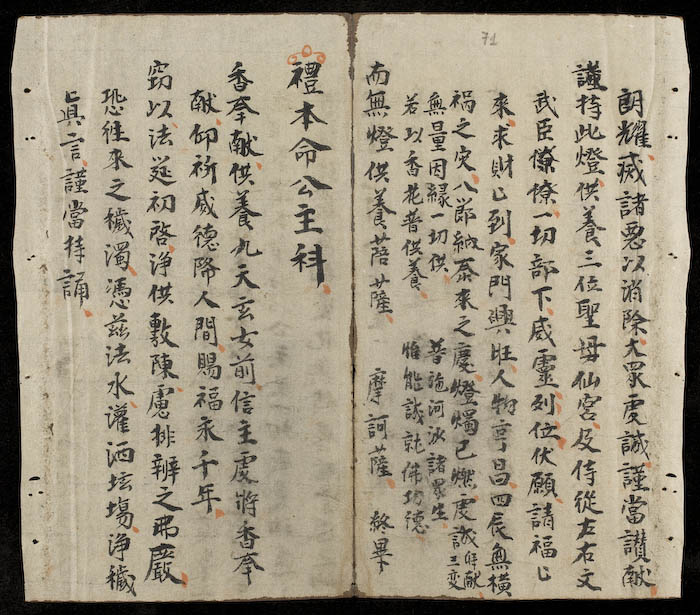 71
朗耀威諸惡以消除大眾虔誠謹當讃献
謹持此燈供養三位聖母仙宮及侍從左右文
武臣僚僚一切部下威靈列位伏願請福㔾
來求財㔾到家門興旺人物亨昌四辰無橫
禍之灾八節納泰來之慶燈燭已燃虔誠拜献
三变
無量因縁一切供 普施河沙諸眾生
若以香花普供養 惟能誠就佛功德
而無燈供養菩薩 摩訶薩 終畢
禮本命公主科
香奉献供養九天玄女前信主虔將香奉
献仰祈威德降人間賜福禾千年
窃以法筵初啓淨供敷陳慮排辦之弗嚴
恐往來之穢濁憑茲法水灌洒坛塲淨穢
真言謹當持誦